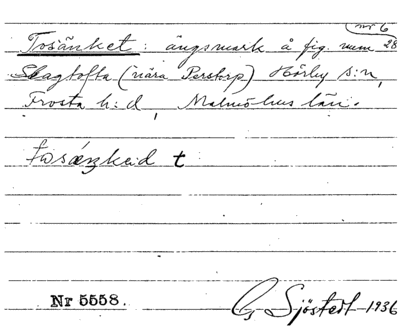 nr 6
Tosänket: ängsmark å fig. num 28
Skagtofta (nära Perstorp) Hörby s:n,
Frosta h:d, Malmöhus län.
Nr 5558.
G Sjöstedt 1936